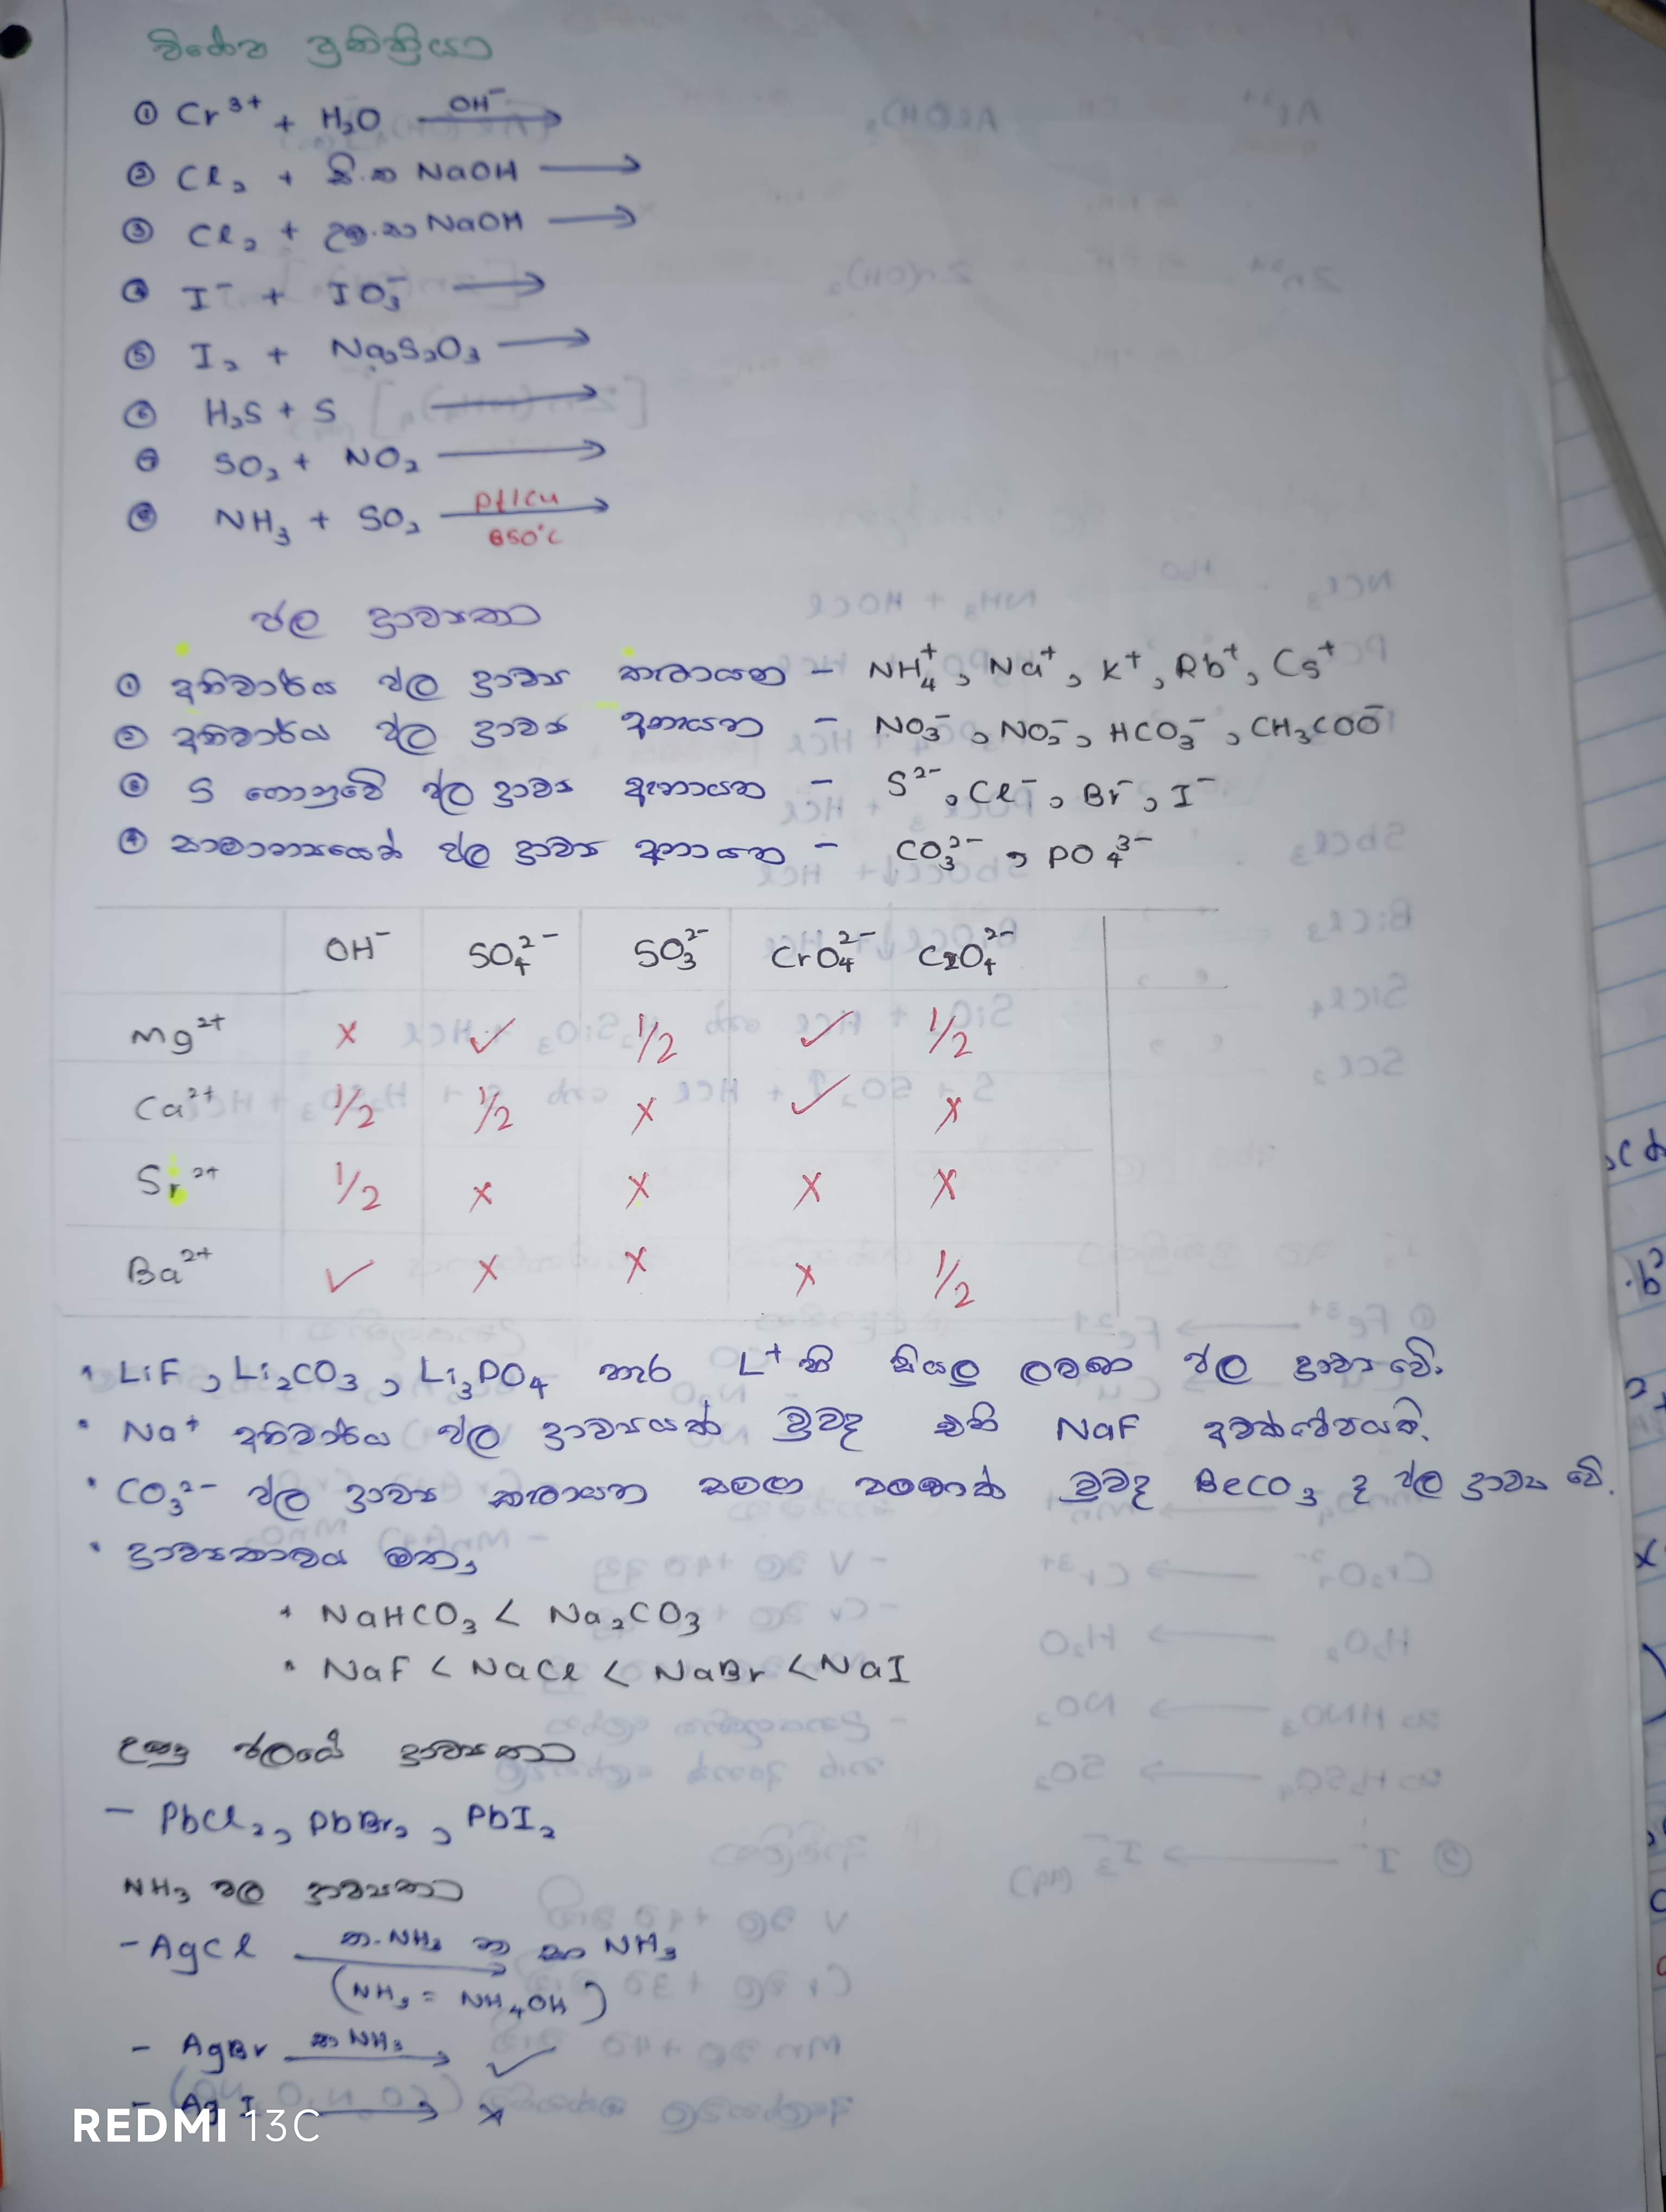 විශේෂ ප්‍රතික්‍රියා
① Cr³⁺ + H₂O —OH⁻→
② Cl₂ + සි.ත NaOH →
③ Cl₂ + උණු.සා NaOH →
④ I⁻ + IO₃⁻ →
⑤ I₂ + Na₂S₂O₃ →
⑥ H₂S + S →
⑦ SO₂ + NO₂ →
⑧ NH₃ + SO₂ —Pt/Cu→
850°C
ජල ද්‍රාව්‍යතා
① අනිවාර්ය ජල ද්‍රාව්‍ය කැටායන – NH₄⁺, Na⁺, K⁺, Rb⁺, Cs⁺
② අනිවාර්ය ජල ද්‍රාව්‍ය ඇනායන – NO₃⁻, NO₂⁻, HCO₃⁻, CH₃COO⁻
③ S ගොනුවේ ජල ද්‍රාව්‍ය ඇනායන – S²⁻, Cl⁻, Br⁻, I⁻
④ සාමාන්‍යයෙන් ජල ද්‍රාව්‍ය ඇනායන – CO₃²⁻, PO₄³⁻
OH⁻ SO₄²⁻ SO₃²⁻ CrO₄²⁻ C₂O₄²⁻
Mg²⁺ × ✓ 1/2 ✓ 1/2
Ca²⁺ 1/2 1/2 × ✓ ×
Sr²⁺ 1/2 × × × ×
Ba²⁺ ✓ × × × 1/2
• LiF, Li₂CO₃, Li₃PO₄ හැර L⁺ හි සියලු ලවණ ජල ද්‍රාව්‍ය වේ.
• Na⁺ අනිවාර්ය ජල ද්‍රාව්‍යයක් වුවද එහි NaF අවක්ශේපයකි.
• CO₃²⁻ ජල ද්‍රාව්‍ය කැටායන සමඟ පමණක් වුවද BeCO₃ ද ජල ද්‍රාව්‍ය වේ.
• ද්‍රාව්‍යතාවය මත,
• NaHCO₃ < Na₂CO₃
• NaF < NaCl < NaBr < NaI
උණු ජලයේ ද්‍රාව්‍යතා
– PbCl₂, PbBr₂, PbI₂
NH₃ වල ද්‍රාව්‍යතා
– AgCl —ත.NH₃→ හෝ සා NH₃
(NH₃ = NH₄OH)
– AgBr —සා NH₃→ ✓
– AgI → ×
REDMI 13C